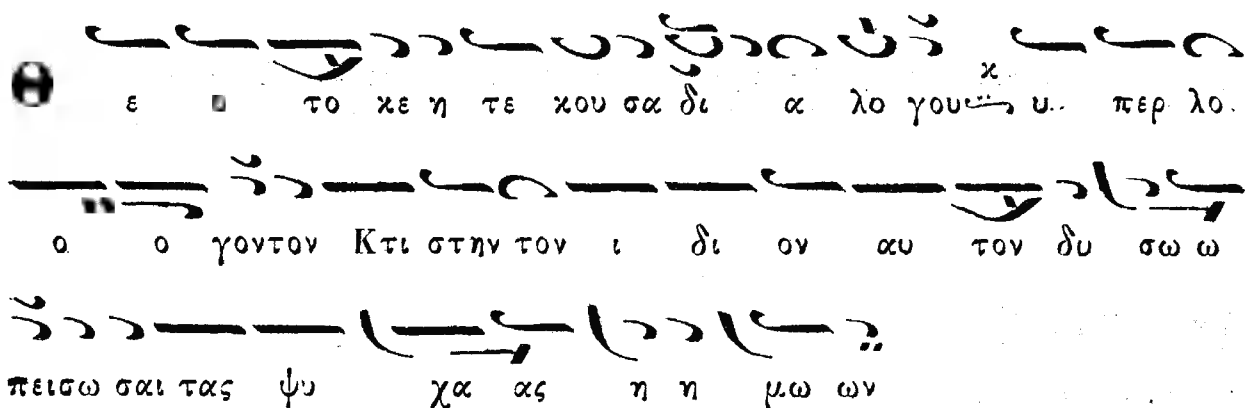 Θ ε ο το κε η τε κου σα δι α λο γου υ περ λο
ο ο γον τον Κτι στην τον ι δι ον αυ τον δυ σω ω
πει σω σαι τας ψυ χα ας η η μω ων